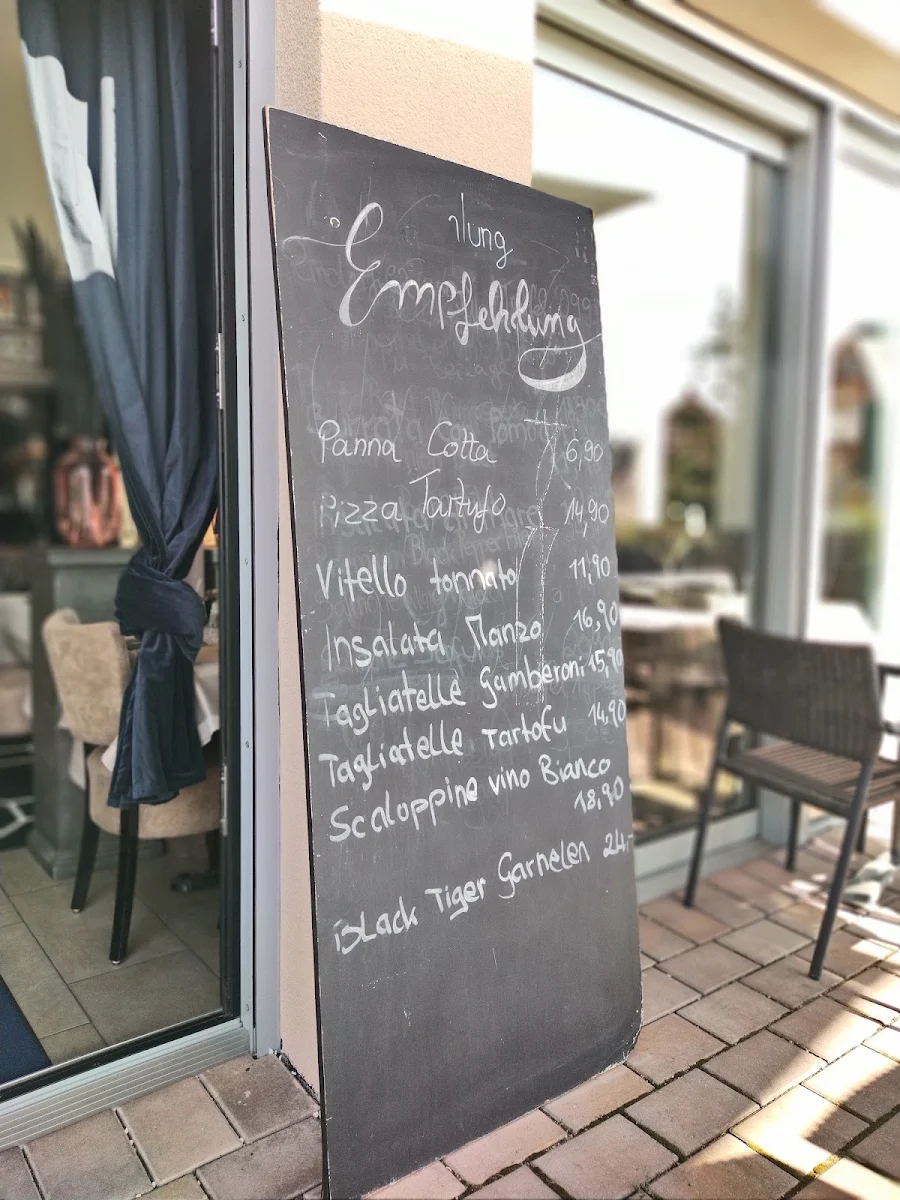 ılung
Empfehlung
Panna Cotta 6,90
Pizza Tartufo 14,90
Vitello tonnato 11,90
Insalata Manzo 16,90
Tagliatelle Gamberoni 15,90
Tagliatelle Tartofu 14,90
Scaloppine vino Bianco
18,90
Black Tiger Garnelen 24,-